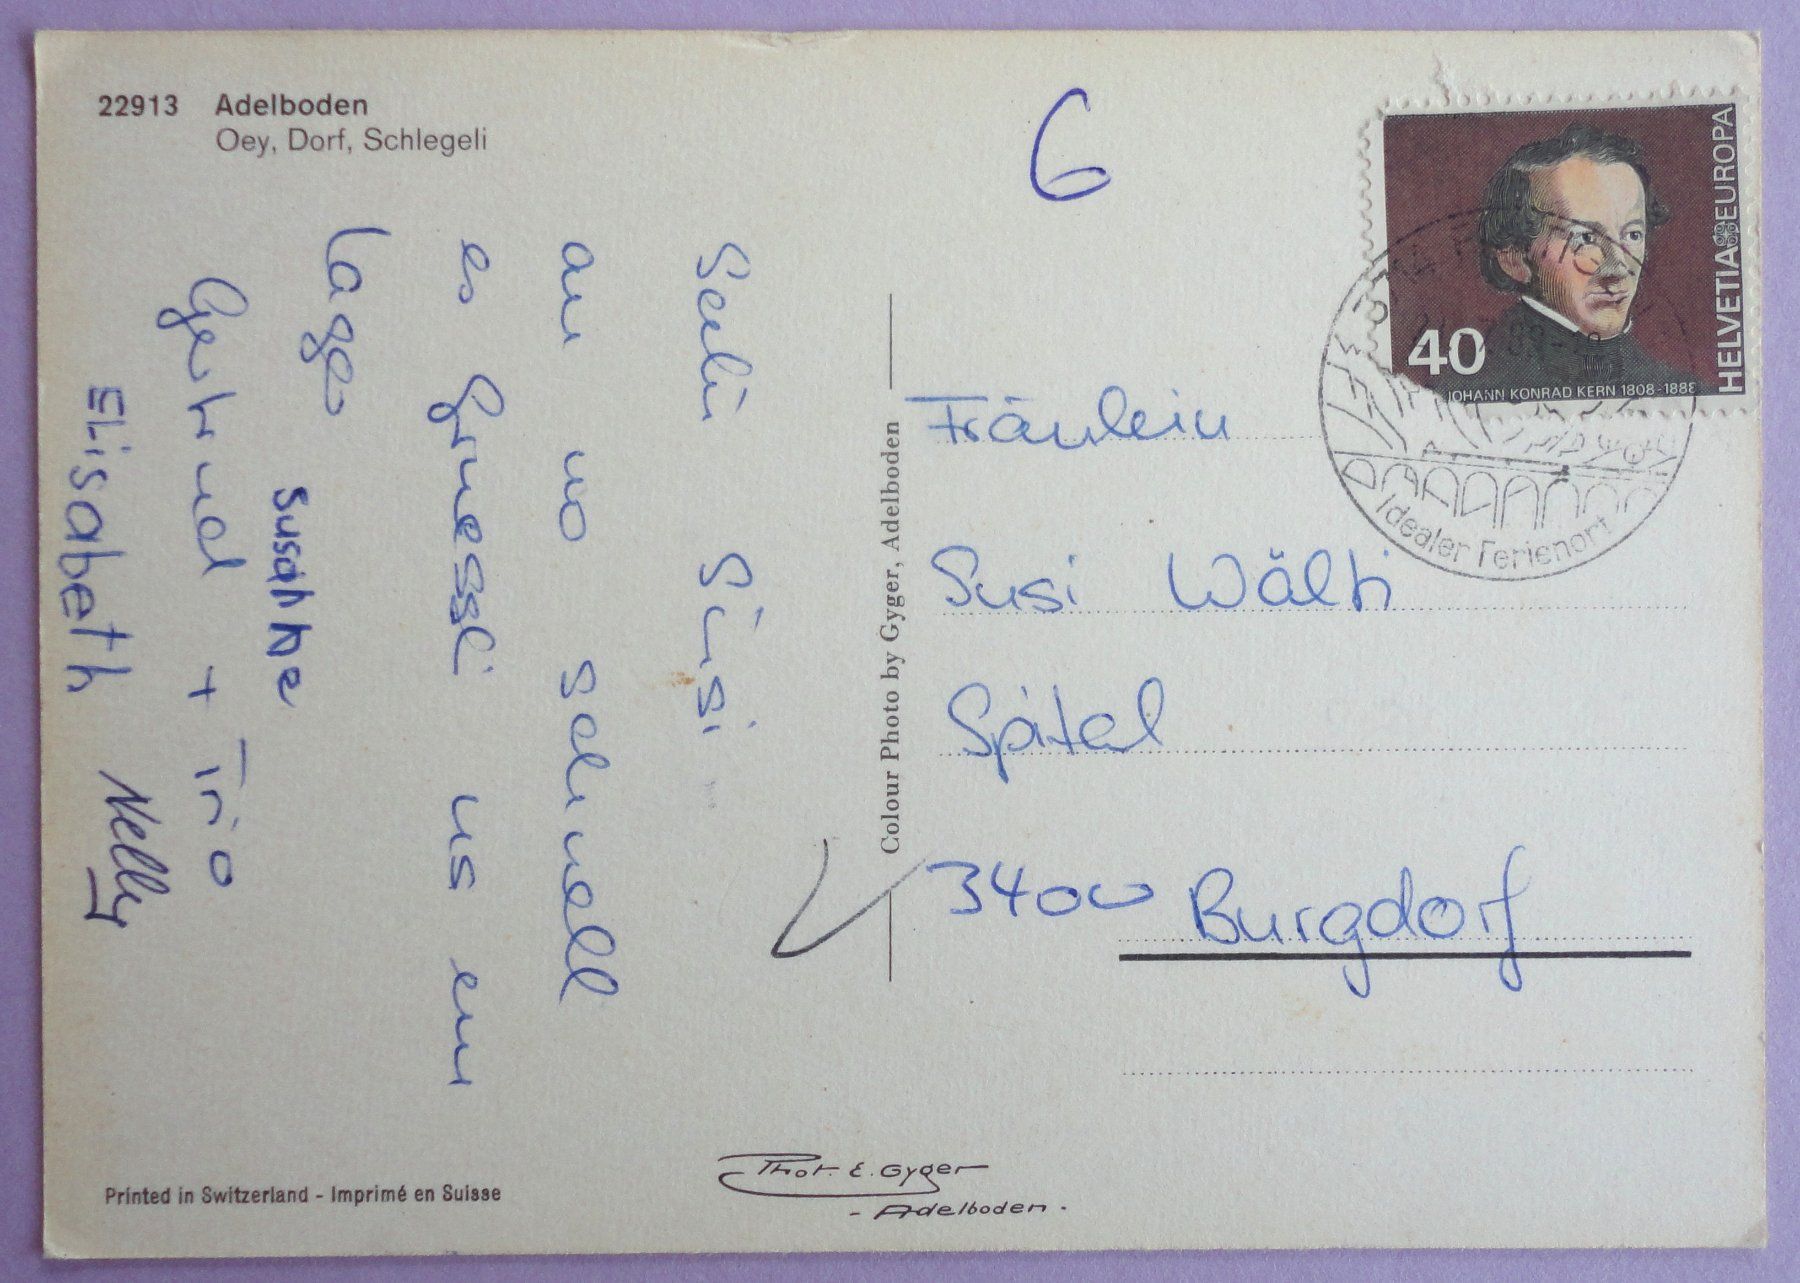 22913 Adelboden
Oey, Dorf, Schlegeli
6
HELVETIA EUROPA
40
JOHANN KONRAD KERN 1808-1888
3714 FRUTIGEN
Idealer Ferienort
Susi
au no schnell
es Grüessli us em
Lager
Susanne
Gertrud + Trio
Elisabeth Nelly
Colour Photo by Gyger, Adelboden
Fräulein
Susi Wälti
Spital
3400 Burgdorf
Printed in Switzerland - Imprimé en Suisse
Phot. E. Gyger
- Adelboden -